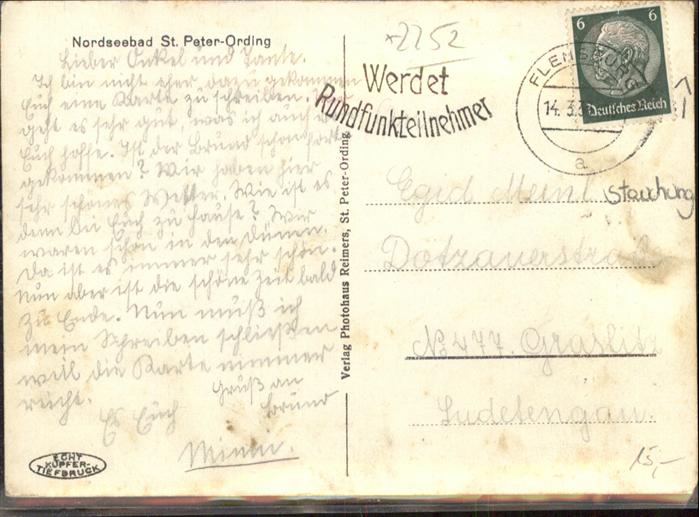 Nordseebad St. Peter-Ording
Lieber Onkel und Tante.
Ich bin nicht eher dazu gekommen
Euch eine Karte zu schreiben.
geht es sehr gut, was ich auch v
Euch hoffe. Ist der Bruno schon fort
gekommen? Wir haben hier
sehr schönes Wetter. Wie ist es
denn bei Euch zu Hause? Wir
waren schon in den Dünen.
Da ist es immer sehr schön.
Nun aber ist die schöne Zeit bald
zu Ende. Nun muß ich
mein Schreiben schließen
weil die Karte nimmer
reicht. Gruß an
Bruno
Es Euch
Minni.
ECHT
KUPFER-
TIEFDRUCK
Verlag Photohaus Reimers, St. Peter-Ording
*2252
Werdet
Rundfunkteilnehmer
FLENSBURG
14.3.3
a
6 6
Deutsches Reich
Egid Meinl
Stauchung
Dotzauerstraß
No 477 Graslitz
Sudetengau.
15,-